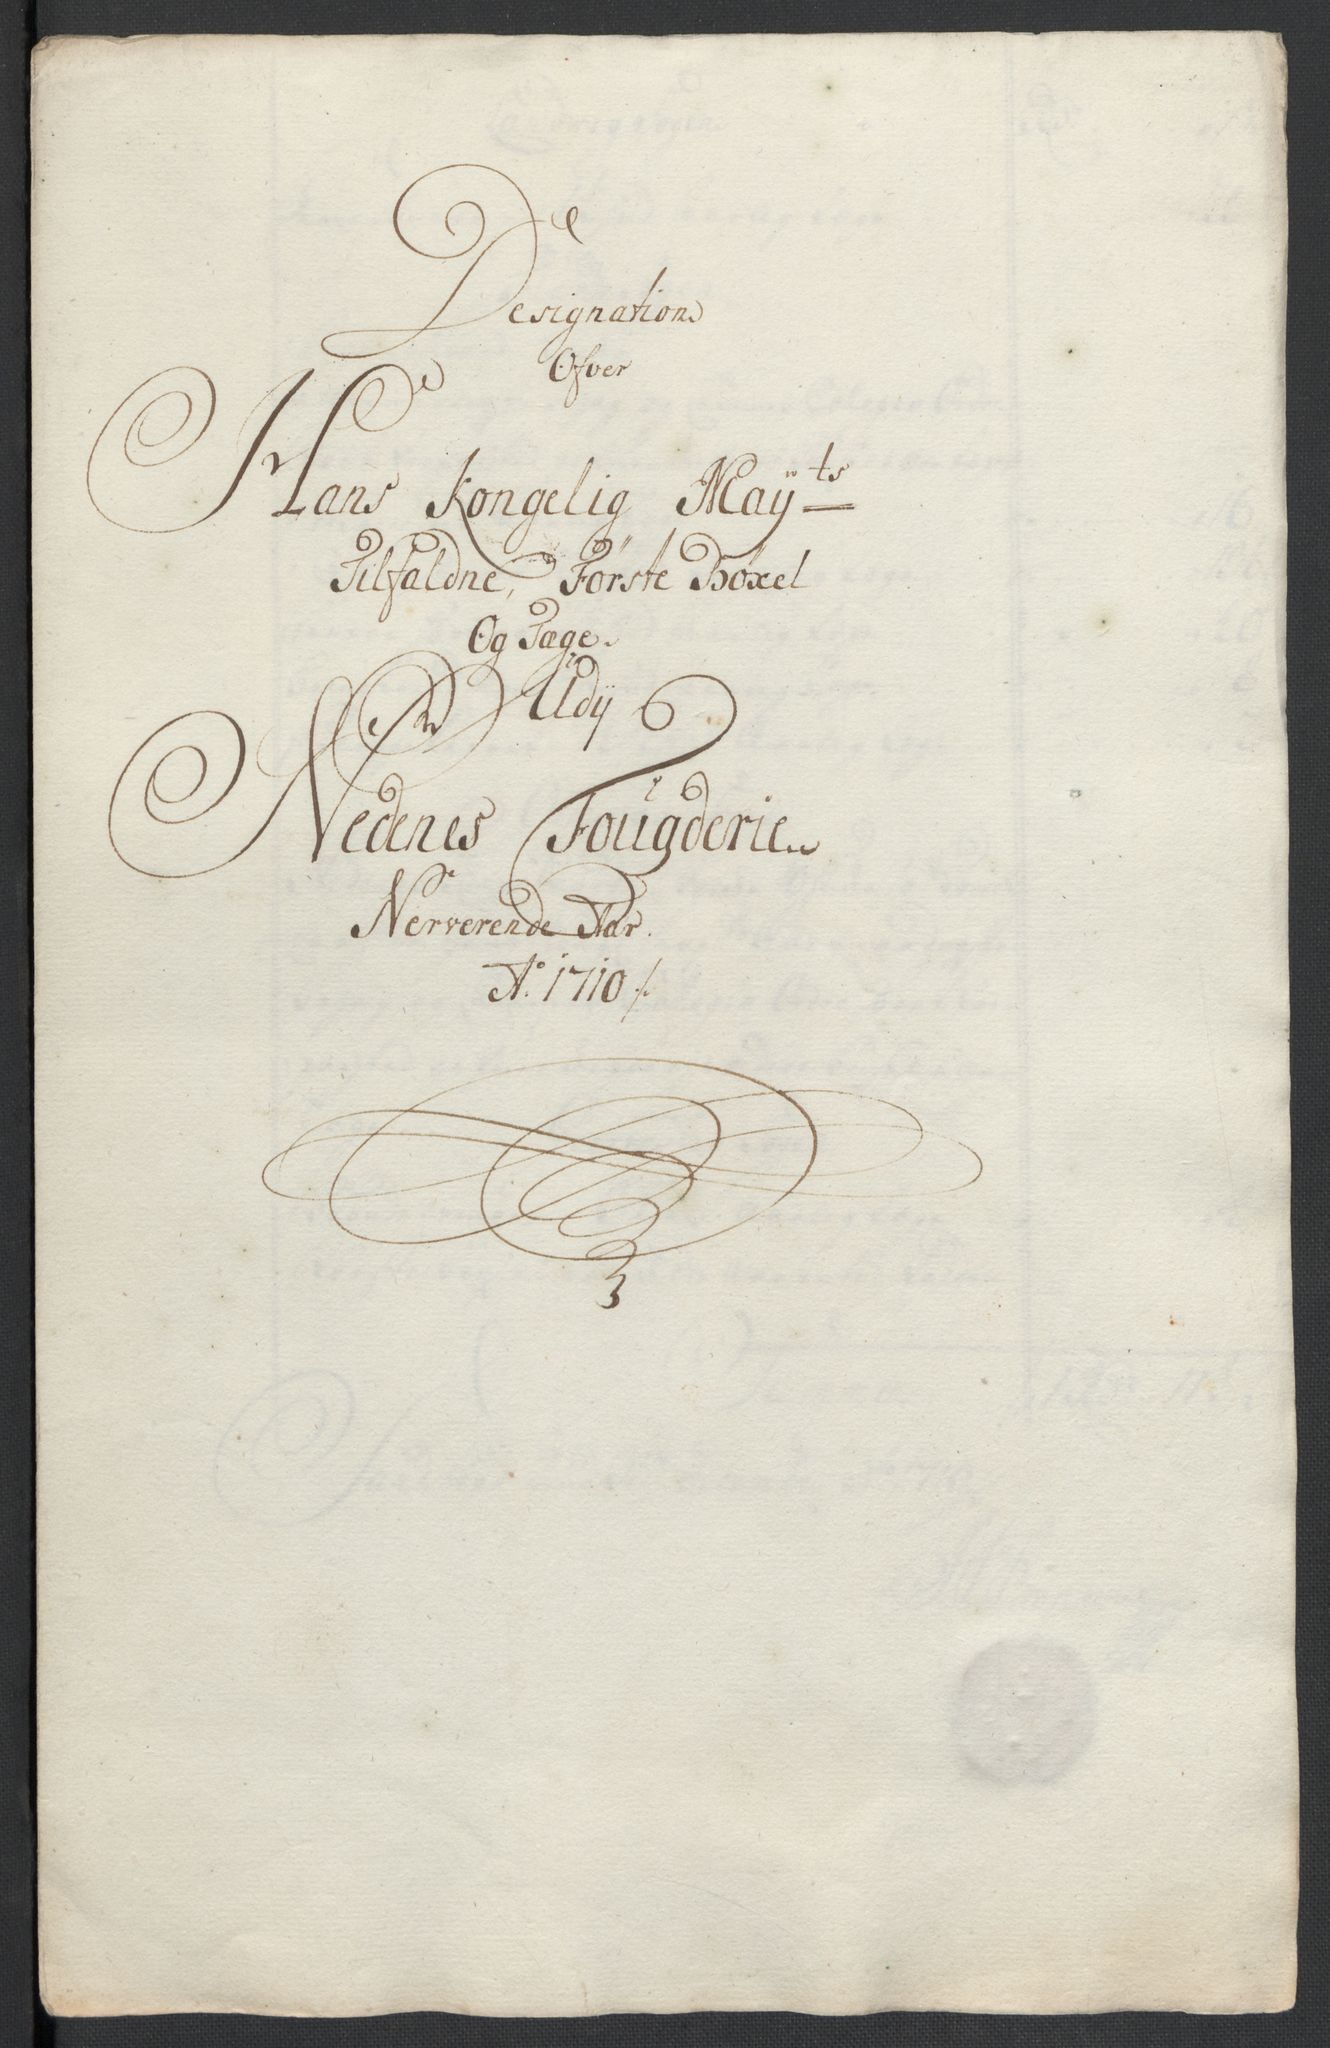 Designation
Ofver
Hans Kongelig Maÿ^ts
Tilfaldne, Förste Böxel
Og Tage.
Udÿ
Nedenes Fougderie
Nerverende Aar.
A° 1710 /.